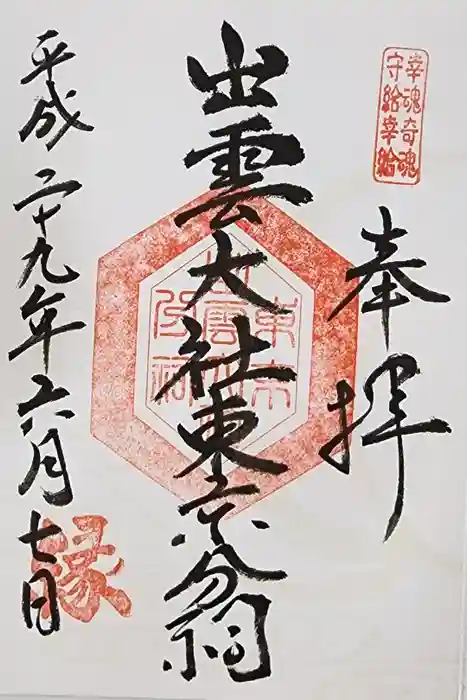 幸魂奇魂
守給幸給
奉拝
出雲大社東京分祠
東京
出雲大
分祠
平成二十九年六月七日
縁